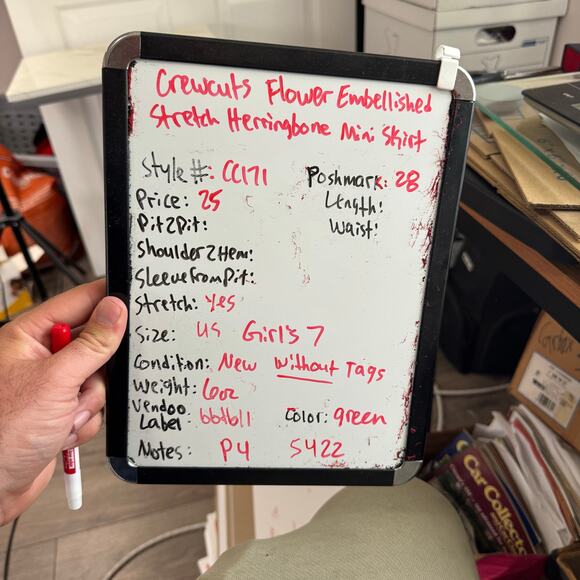 Crewcuts Flower Embellished
Stretch Herringbone Mini Skirt
Style #: CC171
Poshmark: 28
Price: 25
Length:
Pit2Pit:
Waist:
Shoulder2Hem:
SleeveFromPit:
Stretch: Yes
Size: US Girl's 7
Condition: New Without Tags
Weight: 6oz
Vendoo
Label:
Color: green
Notes: P4 S422
Car Collector